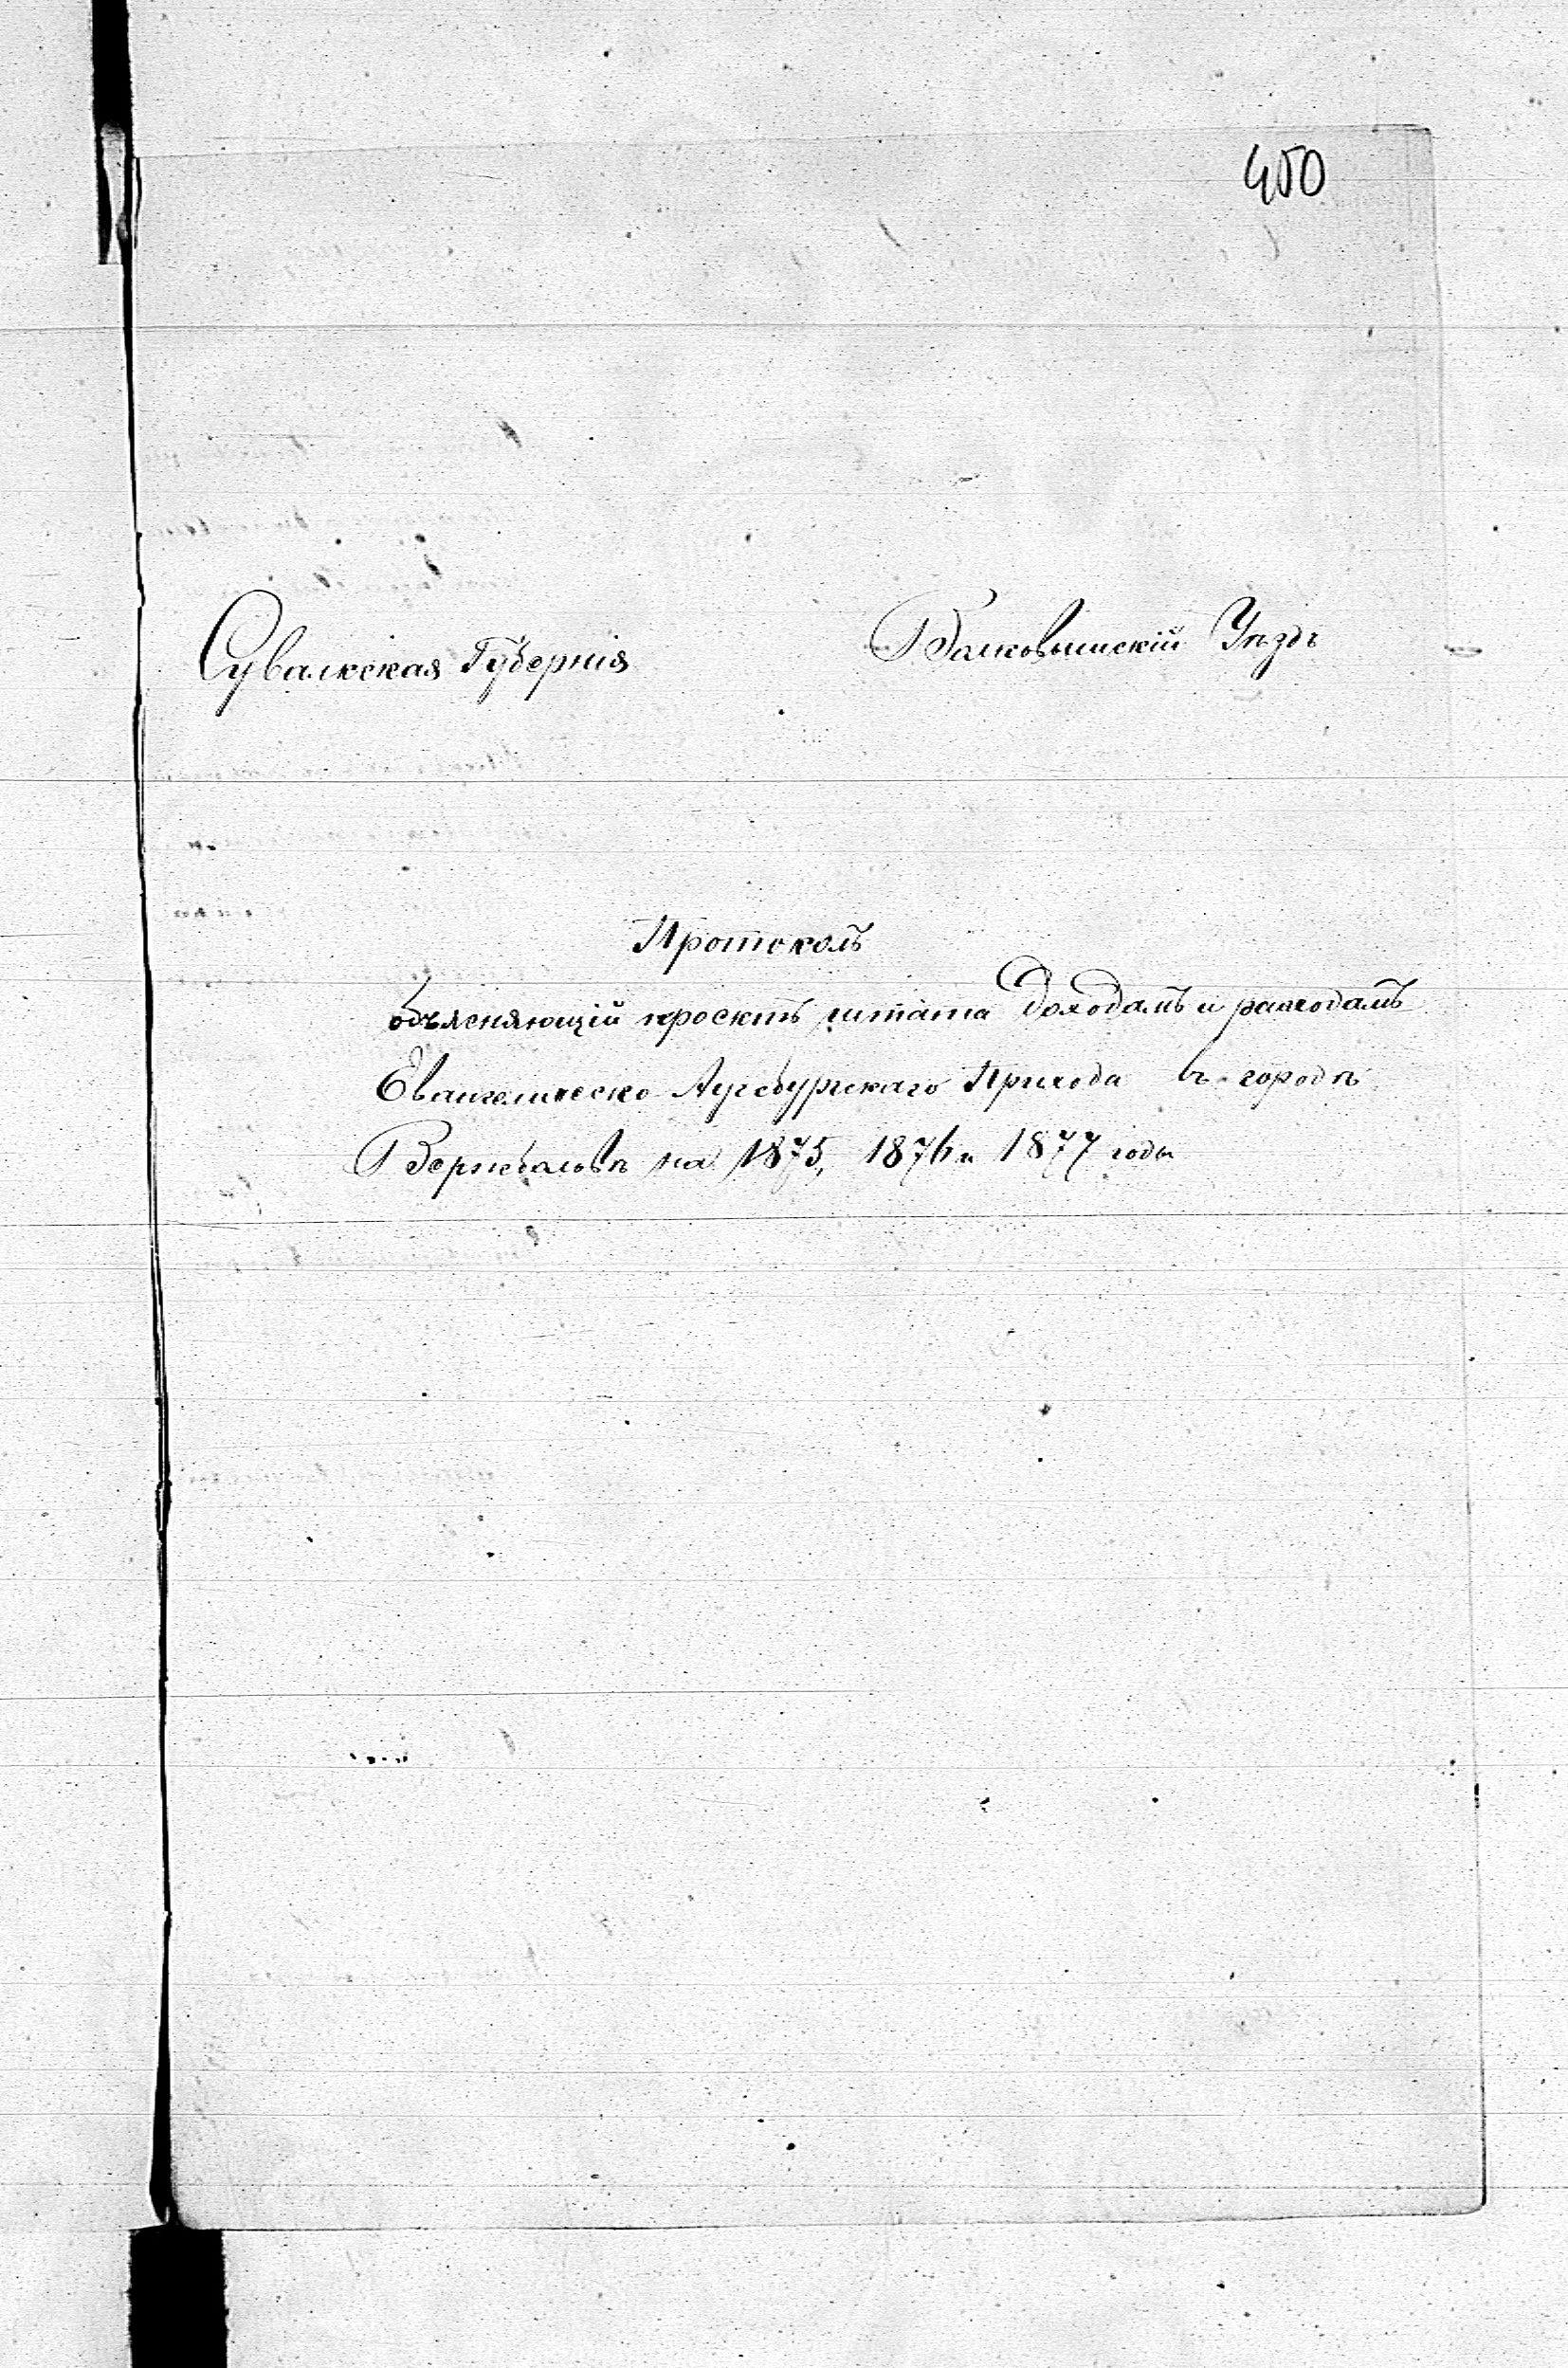 450
Сувалкская Губернія Волковышскій Уѣздъ
Протоколъ
объясняющій проектъ штата доходамъ и расходамъ
Евангелическо Аугсбургскаго Прихода въ городѣ
Вержболовѣ на 1875, 1876 и 1877 годы